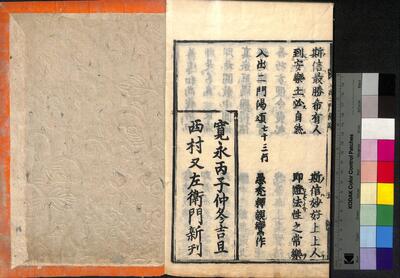 斯信最勝希有人
斯信妙好上上人
到安樂土必自然
即證法性之常樂
入出二門偈頌 七十三行
愚禿釋親鸞作
寛永丙子仲冬吉旦
西村又左衛門新刊
KODAK Color Control Patches